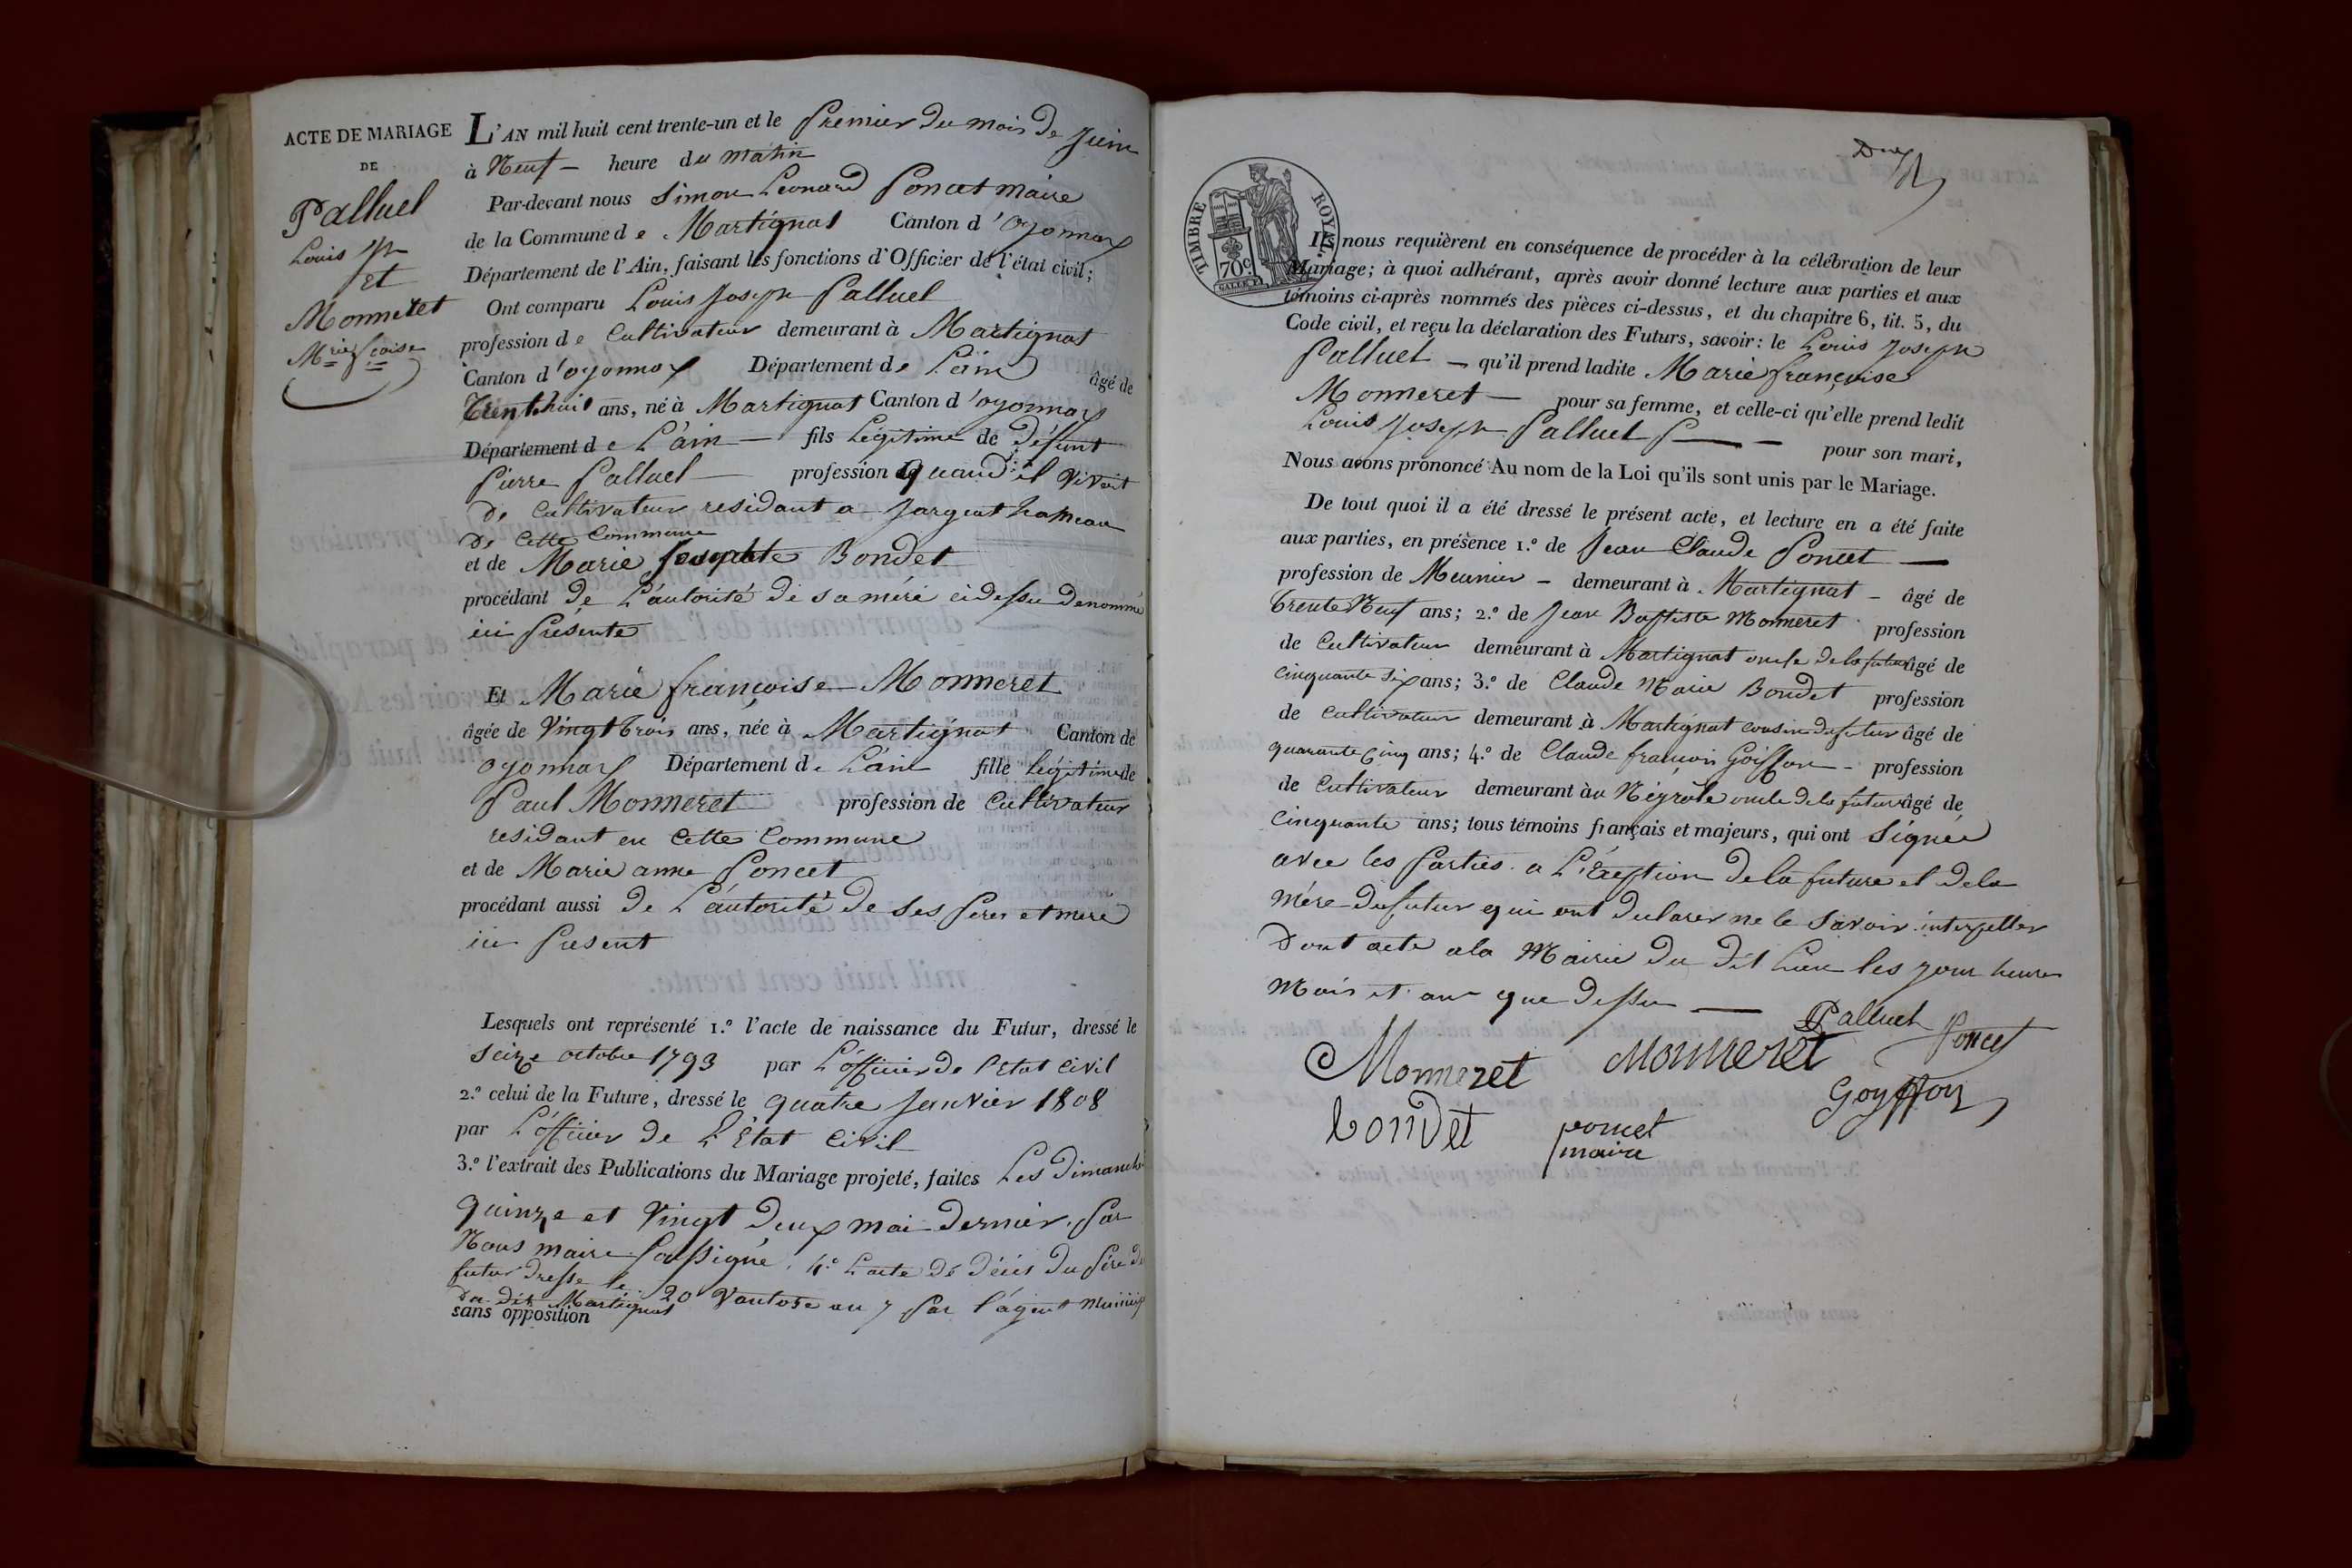 ACTE DE MARIAGE
DE
Palluel
Louis Jph
Et
Monneret
Mrie fçoise
L'AN mil huit cent trente-un et le Premier du mois de Juin
à Neuf – heure du matin
Par-devant nous Simon Léonard Poncet maire
de la Commune de Martignat Canton d'oyonnax
Département de l'Ain, faisant les fonctions d'Officier de l'état civil;
Ont comparu Louis Joseph Palluel
profession de Cultivateur demeurant à Martignat
Canton d'oyonnax Département de L'ain âgé de
trente huit ans, né à Martignat Canton d'oyonnax
Département de L'ain — fils Légitime de défunt
Pierre Palluel — profession quand il vivait
de Cultivateur residant a Jargeat hameau
de Cette Commune
et de Marie Josephte Bondet
procédant de L'autorité de sa mére ci dessu denommé
ici Présente
Et Marie françoise Monneret
âgée de Vingt trois ans, née à Martignat Canton de
oyonnax Département de L'ain fille légitime de
Paul Monneret profession de Cultivateur
residant en Cette Commune
et de Marie anne Poncet
procédant aussi de L'autorité de ses Père et mere
ici Présent
Lesquels ont représenté 1.º l'acte de naissance du Futur, dressé le
Seize octobre 1793 par L'officier de l'Etat Civil
2.º celui de la Future, dressé le quatre Janvier 1808
par L'officier de L'Etat Civil
3.º l'extrait des Publications du Mariage projeté, faites Les dimanche
quinze et Vingt deux mai dernier, Par
Nous maire Soussigné, 4.º L'acte de décés du Pére du
futur dressé le 20 Vantose an 7 Par l'agent
du dit Martignat
sans opposition
TIMBRE ROYAL
70 c
Ils nous requièrent en conséquence de procéder à la célébration de leur
Mariage; à quoi adhérant, après avoir donné lecture aux parties et aux
témoins ci-après nommés des pièces ci-dessus, et du chapitre 6, tit. 5, du
Code civil, et reçu la déclaration des Futurs, savoir: le Louis Joseph
Palluel — qu'il prend ladite Marie françoise
Monneret — pour sa femme, et celle-ci qu'elle prend ledit
Louis Joseph Palluel — pour son mari,
Nous avons prononcé Au nom de la Loi qu'ils sont unis par le Mariage.
De tout quoi il a été dressé le présent acte, et lecture en a été faite
aux parties, en présence 1.º de Jean Claude Poncet —
profession de Meunier – demeurant à Martignat – âgé de
trente Neuf ans; 2.º de Jean Baptiste Monneret profession
de Cultivateur demeurant à Martignat oncle de la future âgé de
Cinquante Six ans; 3.º de Claude Marie Bondet profession
de Cultivateur demeurant à Martignat cousin du futur âgé de
quarante Cinq ans; 4.º de Claude françois Goiffon – profession
de Cultivateur demeurant àu Négrole oncle de la future âgé de
Cinquante ans; tous témoins français et majeurs, qui ont Signée
avec les Parties a L'Exeption de la future et de la
Mére du futur qui ont declarer ne le Savoir interpeller
Dont acte a la Mairie du dit Lieu les jour heure
Mois et an que dessu —
Palluel
Monneret Monneret Poncet
Bondet poncet Goyffon
maire